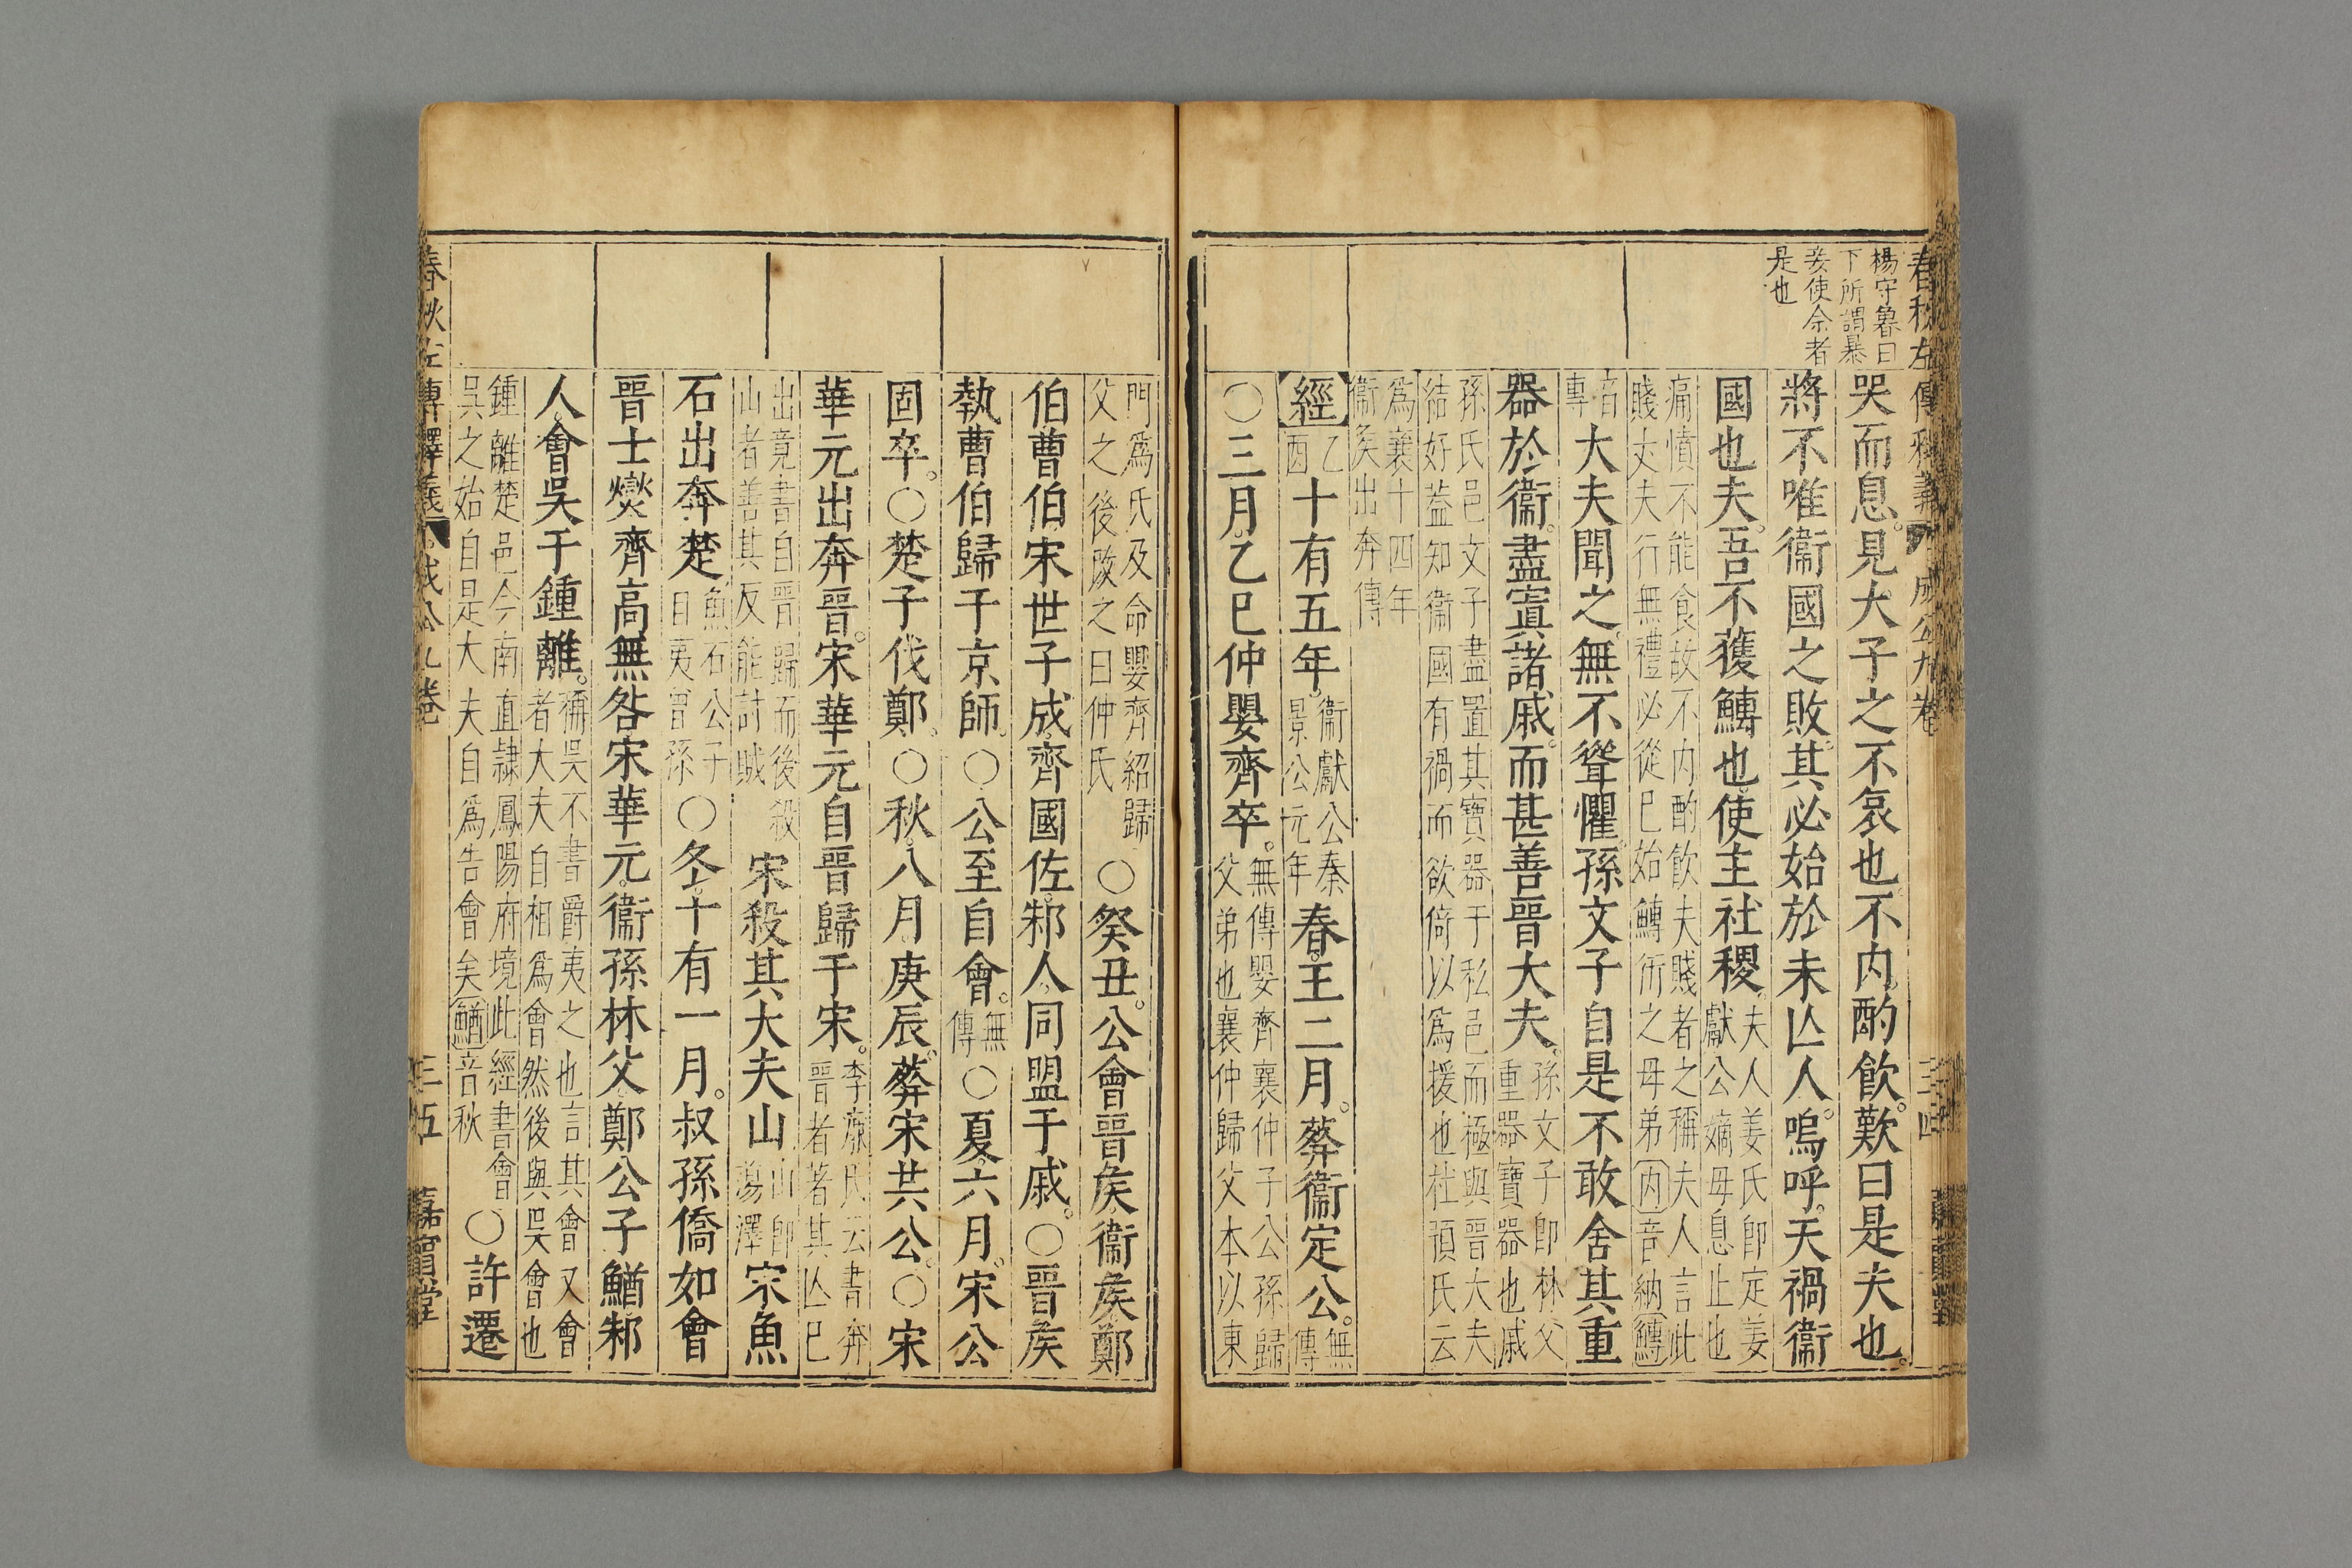 春秋左傳釋義
成公九卷
三四
楊守魯曰
下所謂暴
妾使余者
是也
哭而息見大子之不哀也不內酌飲歎曰是夫也
將不唯衞國之敗其必始於未亾人嗚呼天禍衞
國也夫吾不獲鱄也使主社稷
夫人姜氏卽定姜
獻公嫡母息止也
痛憤不能食故不內酌飮夫賤者之稱夫人言此
賤丈夫行無禮必從巳始鱄衎之母弟内音納鱄
音
專
大夫聞之無不聳懼孫文子自是不敢舍其重
器於衞盡寘諸戚而甚善晉大夫
孫文子卽林父
重器寶器也戚
孫氏邑文子盡置其寶器于私邑而極與晉大夫
結好葢知衞國有禍而欲倚以爲援也杜預氏云
爲襄十四年
衞矦出奔傳
經
乙
酉
十有五年
衞獻公秦
景公元年
春王二月葬衞定公
無
傳
〇三月乙巳仲嬰齊卒
無傳嬰齊襄仲子公孫歸
父弟也襄仲歸父本以東
門爲氏及命嬰齊紹歸
父之後改之曰仲氏
〇癸丑公會晉矦衞矦鄭
伯曹伯宋世子成齊國佐邾人同盟于戚〇晉矦
執曹伯歸于京師〇公至自會
無
傳
〇夏六月宋公
固卒〇楚子伐鄭〇秋八月庚辰葬宋共公〇宋
華元出奔晉宋華元自晉歸于宋
李廉氏云書奔
晉者著其亾巳
出竟書自晉歸而後殺
山者善其反能討賊
宋殺其大夫山
山卽
蕩澤
宋魚
石出奔楚
魚石公子
目夷曾孫
〇冬十有一月叔孫僑如會
晉士燮齊高無咎宋華元衞孫林父鄭公子鰌邾
人會吳于鍾離
稱吳不書爵夷之也言其會又會
者大夫自相爲會然後與吳會也
鍾離楚邑今南直隷鳳陽府境此經書會
吳之始自是大夫自爲告會矣鰌音秋
〇許遷
春秋左傳釋義
成公九卷
三五
嘉賓堂